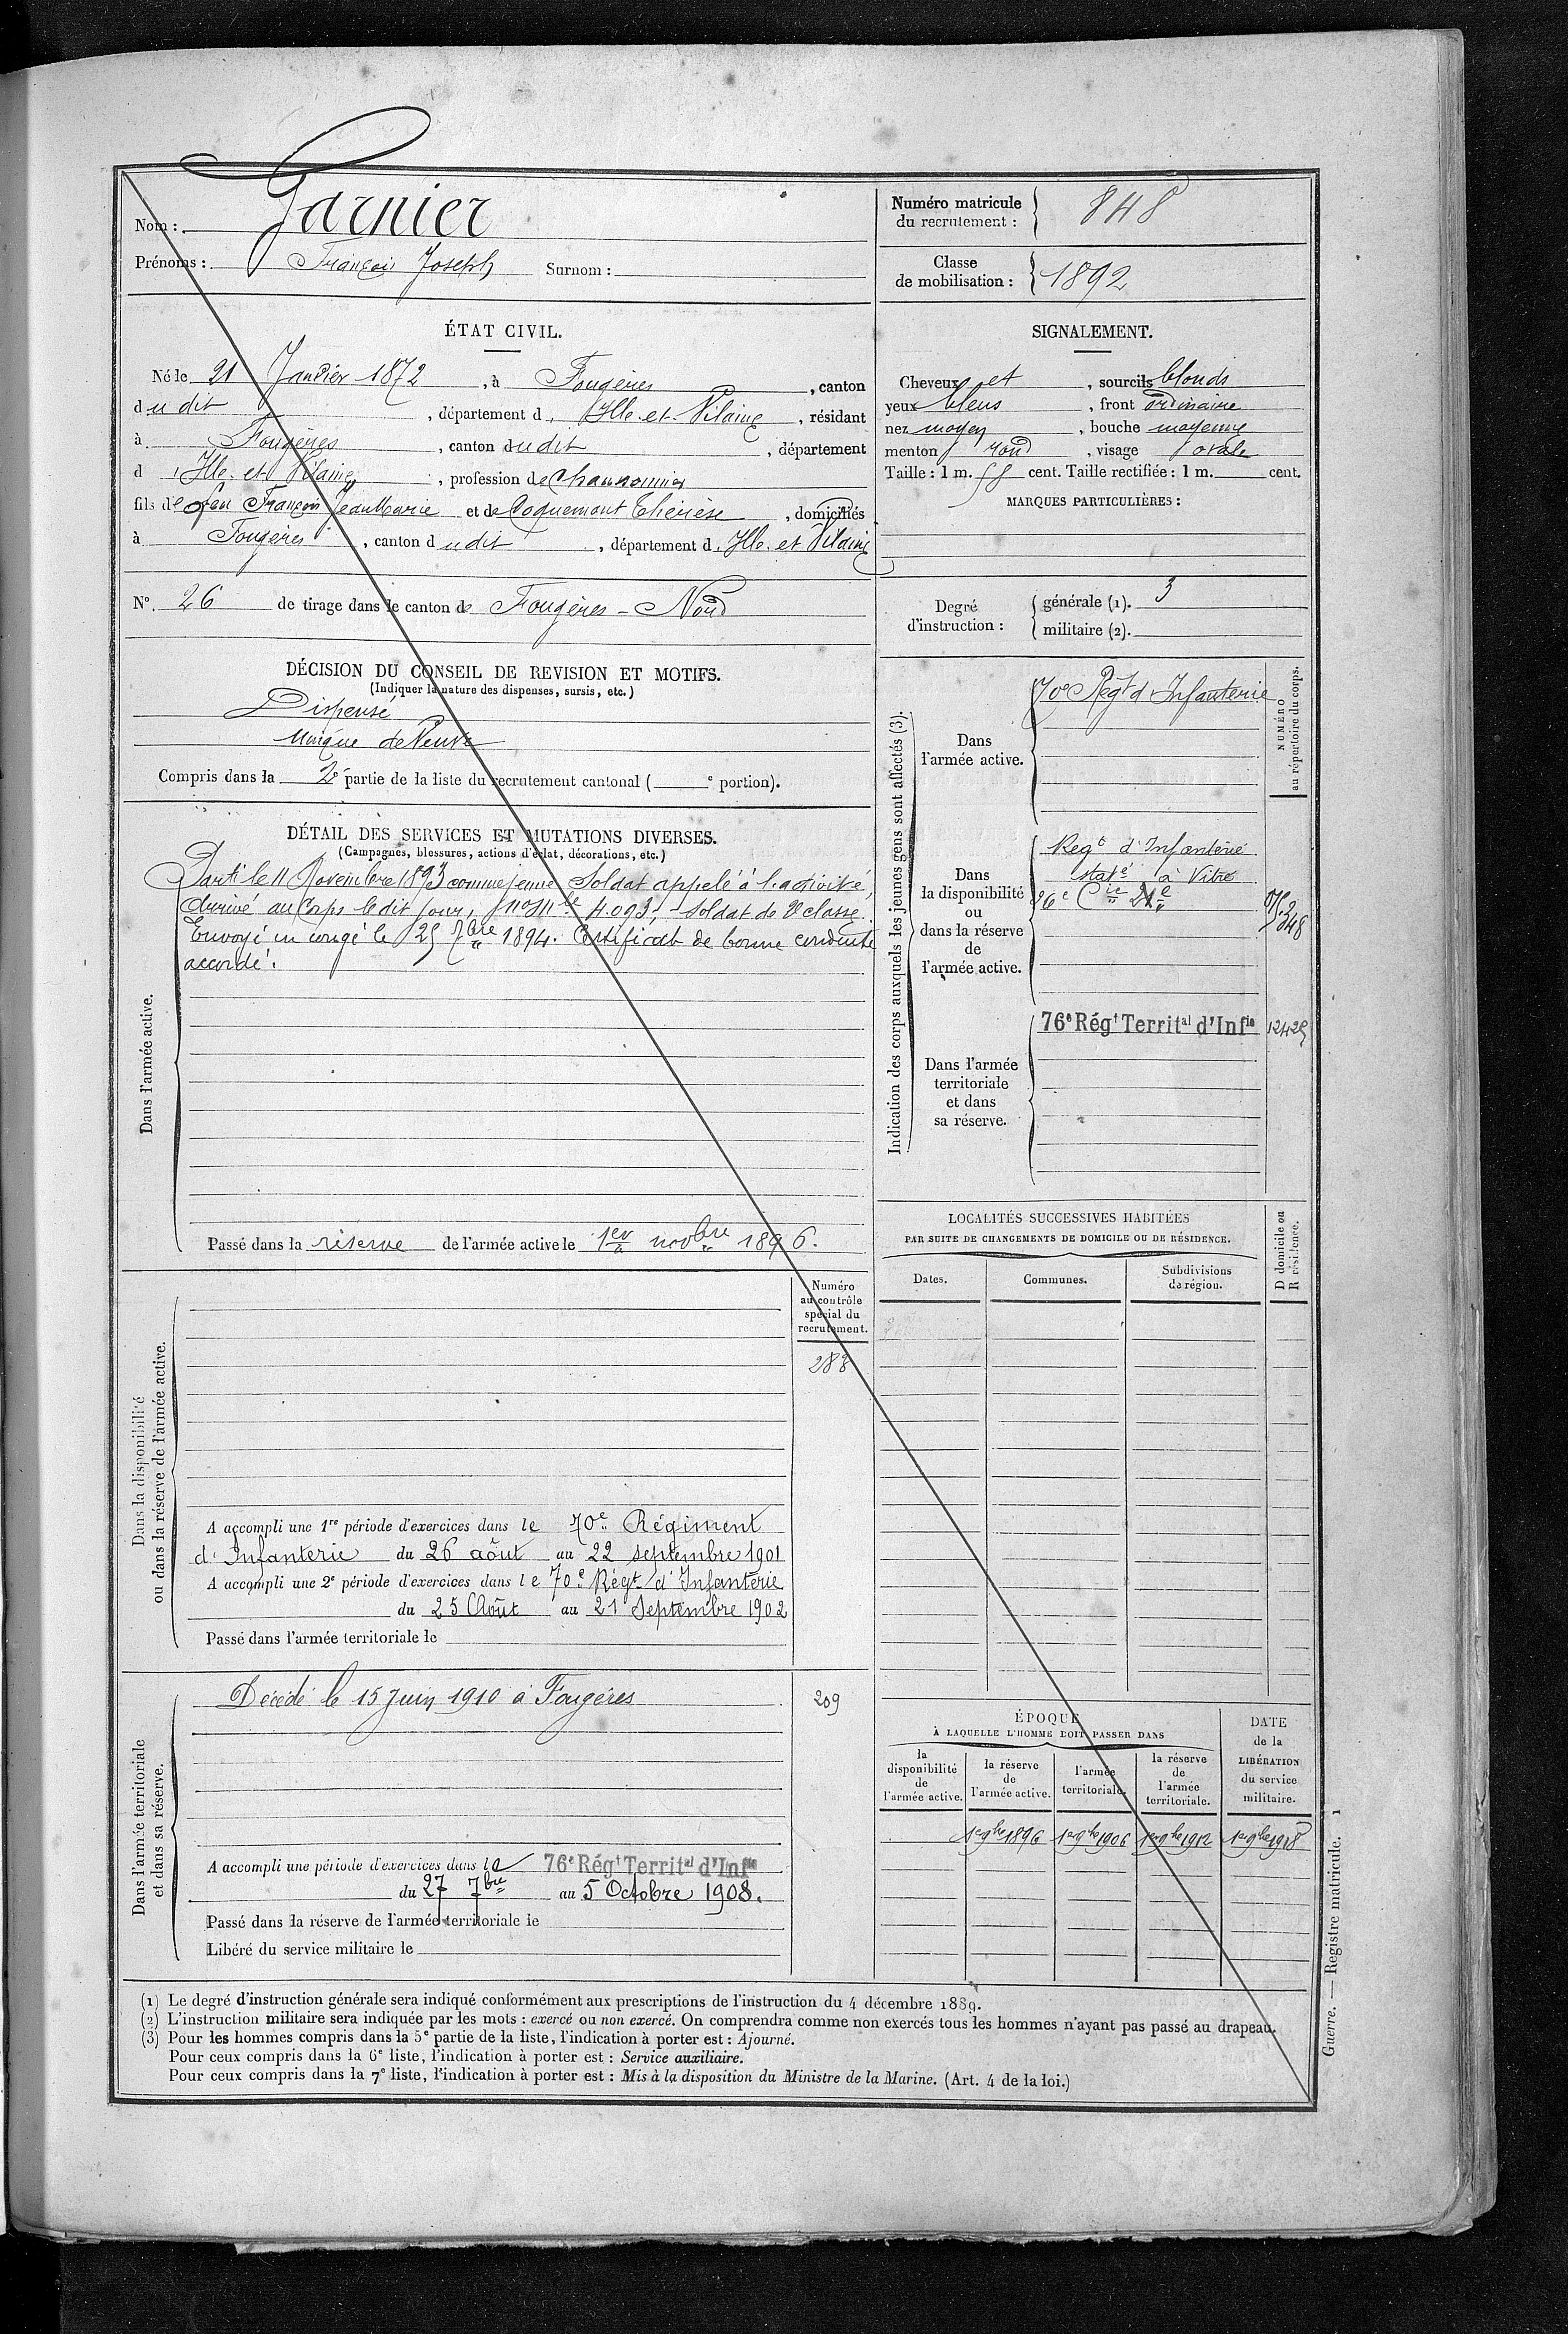 Nom : Garnier
Prénoms : François Joseph Surnom :
Numéro matricule du recrutement : 848
Classe de mobilisation : 1892
ÉTAT CIVIL.
Né le 21 Janvier 1872, à Fougères, canton
dudit, département d'Ille-et-Vilaine, résidant
à Fougères, canton dudit, département
d'Ille-et-Vilaine, profession de
fils de feu François Jean Marie et de Coquemont Thérèse, domiciliés
à Fougères, canton dudit, département d'Ille-et-Vilaine
N° 26 de tirage dans le canton de Fougères-Nord
SIGNALEMENT.
Cheveux et, sourcils blonds
yeux bleus, front ordinaire
nez moyen, bouche moyenne
menton rond, visage ovale
Taille : 1 m. 55 cent. Taille rectifiée : 1 m. cent.
MARQUES PARTICULIÈRES :
Degré d'instruction : générale (1). 3
militaire (2).
DÉCISION DU CONSEIL DE REVISION ET MOTIFS.
(Indiquer la nature des dispenses, sursis, etc.)
Dispensé
unique de Veuve
Compris dans la 2e partie de la liste du recrutement cantonal ( e portion).
DÉTAIL DES SERVICES ET MUTATIONS DIVERSES.
(Campagnes, blessures, actions d'éclat, décorations, etc.)
Dans l'armée active.
Parti le 11 Novembre 1893 comme jeune Soldat appelé à l'activité,
Arrivé au Corps le dit jour, no Mle 4.093, soldat de 2e classe.
Envoyé en congé le 25 7bre 1894. Certificat de bonne conduite
accordé.
Passé dans la réserve de l'armée active le 1er novbre 1896.
Indication des corps auxquels les jeunes gens sont affectés (3).
NUMÉRO au répertoire du corps.
Dans l'armée active.
70e Régt d'Infanterie
Dans la disponibilité ou dans la réserve de l'armée active.
Regt d'Infanterie
staté à Vitré
Dans l'armée territoriale et dans sa réserve.
76e Régt Territal d'Infie 12425
LOCALITÉS SUCCESSIVES HABITÉES
PAR SUITE DE CHANGEMENTS DE DOMICILE OU DE RÉSIDENCE.
Dates. Communes. Subdivisions de région. D domicile ou R résidence.
Dans la disponibilité ou dans la réserve de l'armée active.
Numéro au contrôle spécial du recrutement.
288
A accompli une 1re période d'exercices dans le 70e Régiment
d'Infanterie du 26 août au 22 septembre 1901
A accompli une 2e période d'exercices dans le 70e Régt d'Infanterie
du 25 Août au 21 Septembre 1902
Passé dans l'armée territoriale le
Dans l'armée territoriale et dans sa réserve.
Décédé le 15 Juin 1910 à Fougères 209
A accompli une période d'exercices dans le 76e Régt Territal d'Infie
du 27 7bre au 5 Octobre 1908.
Passé dans la réserve de l'armée territoriale le
Libéré du service militaire le
ÉPOQUE
À LAQUELLE L'HOMME DOIT PASSER DANS
la disponibilité de l'armée active. la réserve de l'armée active. l'armée territoriale. la réserve de l'armée territoriale. DATE de la LIBÉRATION du service militaire.
1er 9bre 1896 1er 9bre 1906 1er 9bre 1912 1er 9bre 1918
(1) Le degré d'instruction générale sera indiqué conformément aux prescriptions de l'instruction du 4 décembre 1889.
(2) L'instruction militaire sera indiquée par les mots : exercé ou non exercé. On comprendra comme non exercés tous les hommes n'ayant pas passé au drapeau.
(3) Pour les hommes compris dans la 5e partie de la liste, l'indication à porter est : Ajourné.
Pour ceux compris dans la 6e liste, l'indication à porter est : Service auxiliaire.
Pour ceux compris dans la 7e liste, l'indication à porter est : Mis à la disposition du Ministre de la Marine. (Art. 4 de la loi.)
Guerre. — Registre matricule. 1